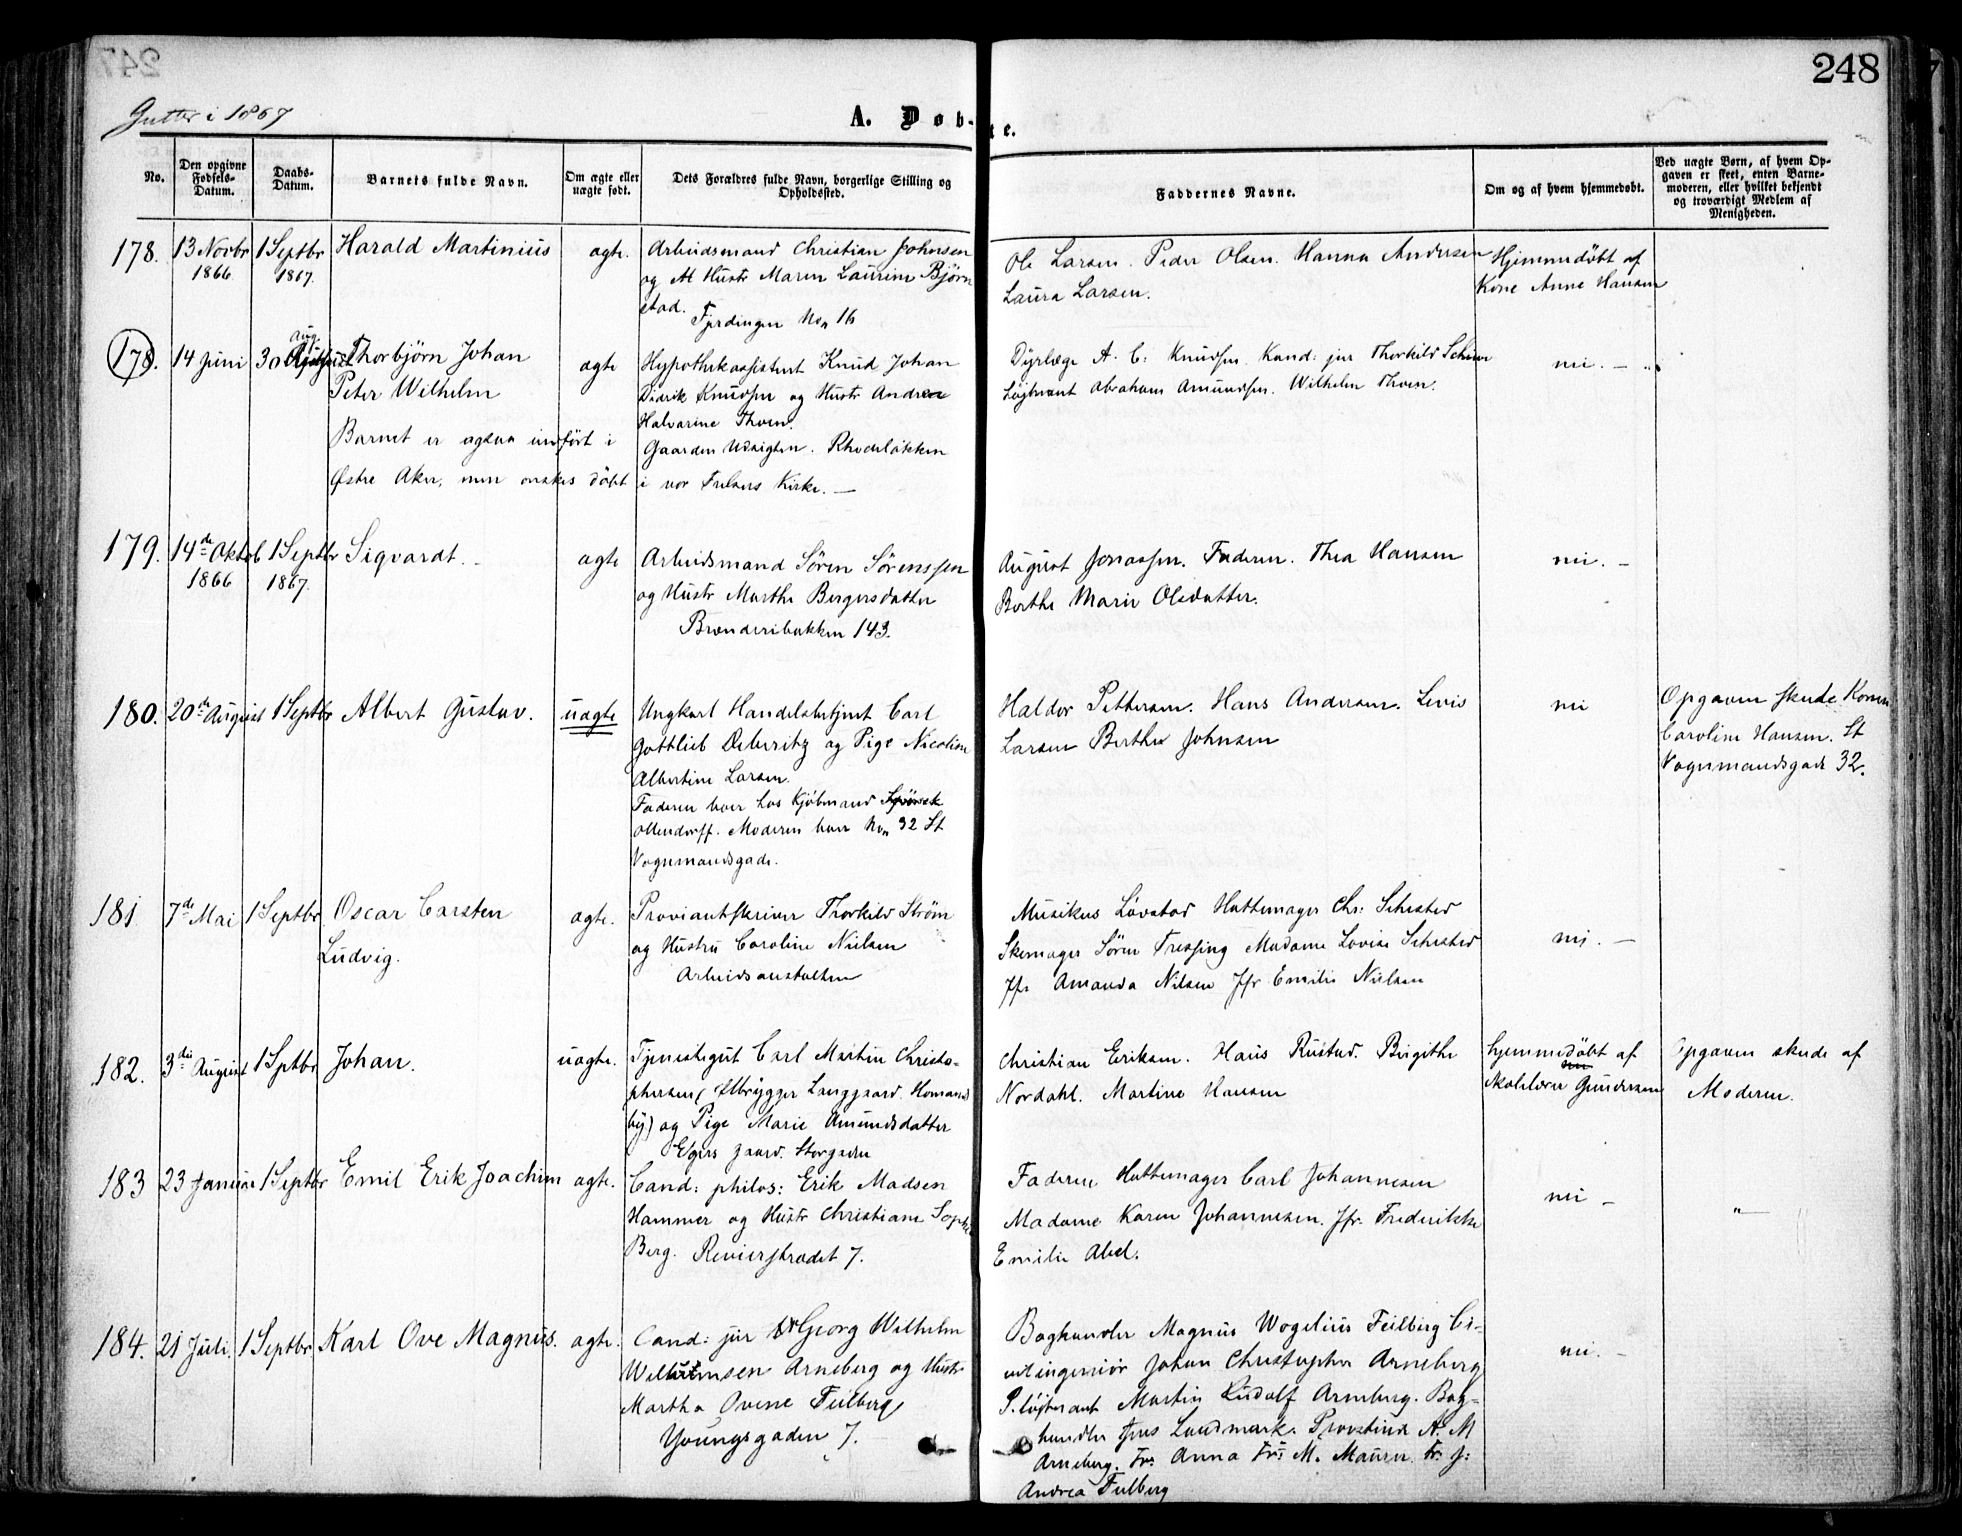 248
Gutter i 1867
A. Døb-te.
No.
Den opgivne Fødsels-Datum.
Daabs-Datum.
Barnets fulde Navn.
Om ægte eller uægte født.
Dets Forældres fulde Navn, borgerlige Stilling og Opholdssted.
Faddernes Navne.
Om og af hvem hjemmedøbt.
Ved uægte Børn, af hvem Opgaven er skeet, enten Barnemoderen, eller hvilket bekjendt og troværdigt Medlem af Menigheden.
178. 13 Novbr 1866. 1 Septbr 1867. Harald Martinius ægte.
Arbeidsmand Christian Johnsen
og Hustr Maren Laurine Bjørn
stad.
Fjerdingen No 16
Ole Larsen. Peder Olsen. Hanna Andersen
Laura Larsen.
Hjemmedöbt af
Kone Anne Hansen
178. 14 Juni 30 Aug. Thorbjørn Johan
Peter Wilhelm
ægte
Hypothekassistent Knud Johan
Didrik Knudsen og Hustr Andrea
Halvarine Thoen.
Gaarden Udsigten. Rhodeløkken
Barnet er ogsaa indført i
Østre Aker, men ønskes döbt i vor Frelsers Kirke. —
Dyrlæge A. C. Knudsen. Kand: jur Thorkild
Løjtnant Abraham Amundsen. Wilhelm Thoen.
nei. —
179. 14de Oktob 1866 1 Septbr 1867. Sigvardt. ægte
Arbeidsmand Sören Sörenssen
og Hustr Marthe Bergersdatter
Brænderibakken 143.
August Jonassen. Faderen. Thea Hansen
Berthe Marie Olsdatter.
nei. —
180. 20de August 1 Septbr Albert Gustav. uægte
Ungkarl Handelsbetjent Carl
Gottlieb Deberitz og Pige Nicoline
Albertine Larsen.
Faderen boer hos Kjøbmand
Ollendorff. Moderen boer No 32 St
Vognmandsgade.
Haldor Pettersen. Hans Andersen. Lovis
Larsen Berthe Johnsen
nei
Opgaven skede Konen
Caroline Hansen. St
Vognmandsgade 32.
181 7de Mai 1 Septbr Oscar Carsten
Ludvig.
ægte.
Proviantskriver Thorkild Ström
og Hustru Caroline Nielsen
Arbeidsanstalten
Musikus Lövstad Hattemager Chr: Schested
Skomager Sören Tressing Madame Lovise Schested
Jfr Amanda Nilsen Jfr Emilie Nielsen
nei. —
182. 3die August 1 Sptbr Johan. uægte.
Tjenestegut Carl Martin Christo-
phersen (Ølbrygger Langgaard Homans
by) og Pige Marie Amundsdatter
Egers gaard. Storgaden
Christian Eriksen. Hans Rustad. Birgithe
Nordahl. Martine Hansen
hjemmedöbt af
Skolelærer Gundersen
Opgaven skede af
Moderen.
183 23 Januar 1 Septbr Emil Erik Joachim ægte.
Cand: philos: Erik Madsen
Hammer og Hustr Christiane Sophie
Berg. Revierstrædet 7.
Faderen Hattemager Carl Johannesen
Madame Karen Johannesen. Jfr. Frederikke
Emilie Abel.
nei —
184. 21 Juli. 1 Septbr Karl Ove Magnus. ægte.
Cand: jur Georg Wilhelm
Arneberg og Hustr
Martha Ovene Feilberg
Youngsgaden 7.
Boghandler Magnus Wogelius Feilberg Ci-
vilingeniör Johan Christopher Arneberg
P. løjtenant Martin Ludolf Arneberg. Bog-
handler Jens Landmark. Provstinde A. M
Arneberg. Fr: Anna Fr: M. Maurer. Fr: J:
Andrea Feilberg
nei. —